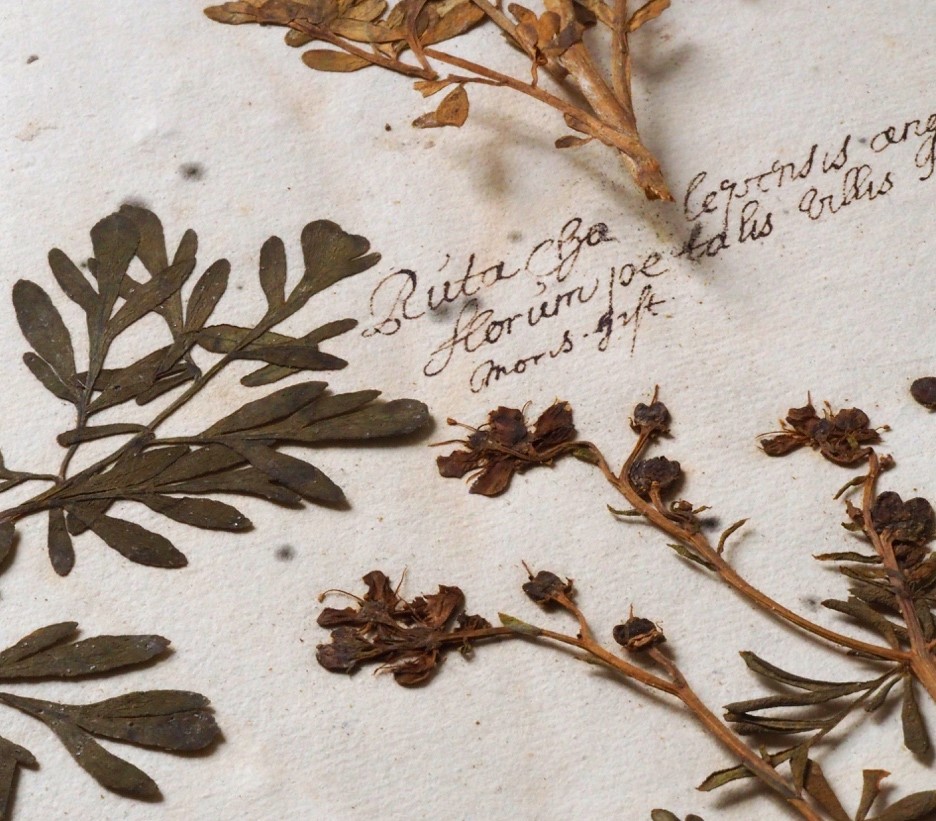 Ruta Cha lepensis ang
florum petalis villis
Moris. gist.